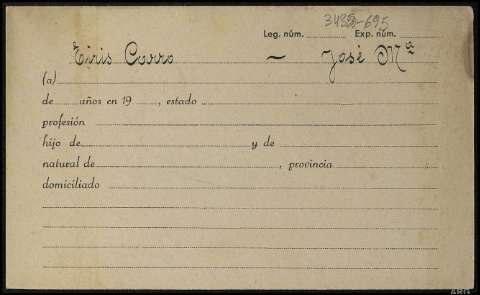 3432-695
Leg. núm. Exp. núm.
Eiris Corro ~ José Mª
(a)
de años en 19 , estado
profesión
hijo de y de
natural de , provincia
domiciliado